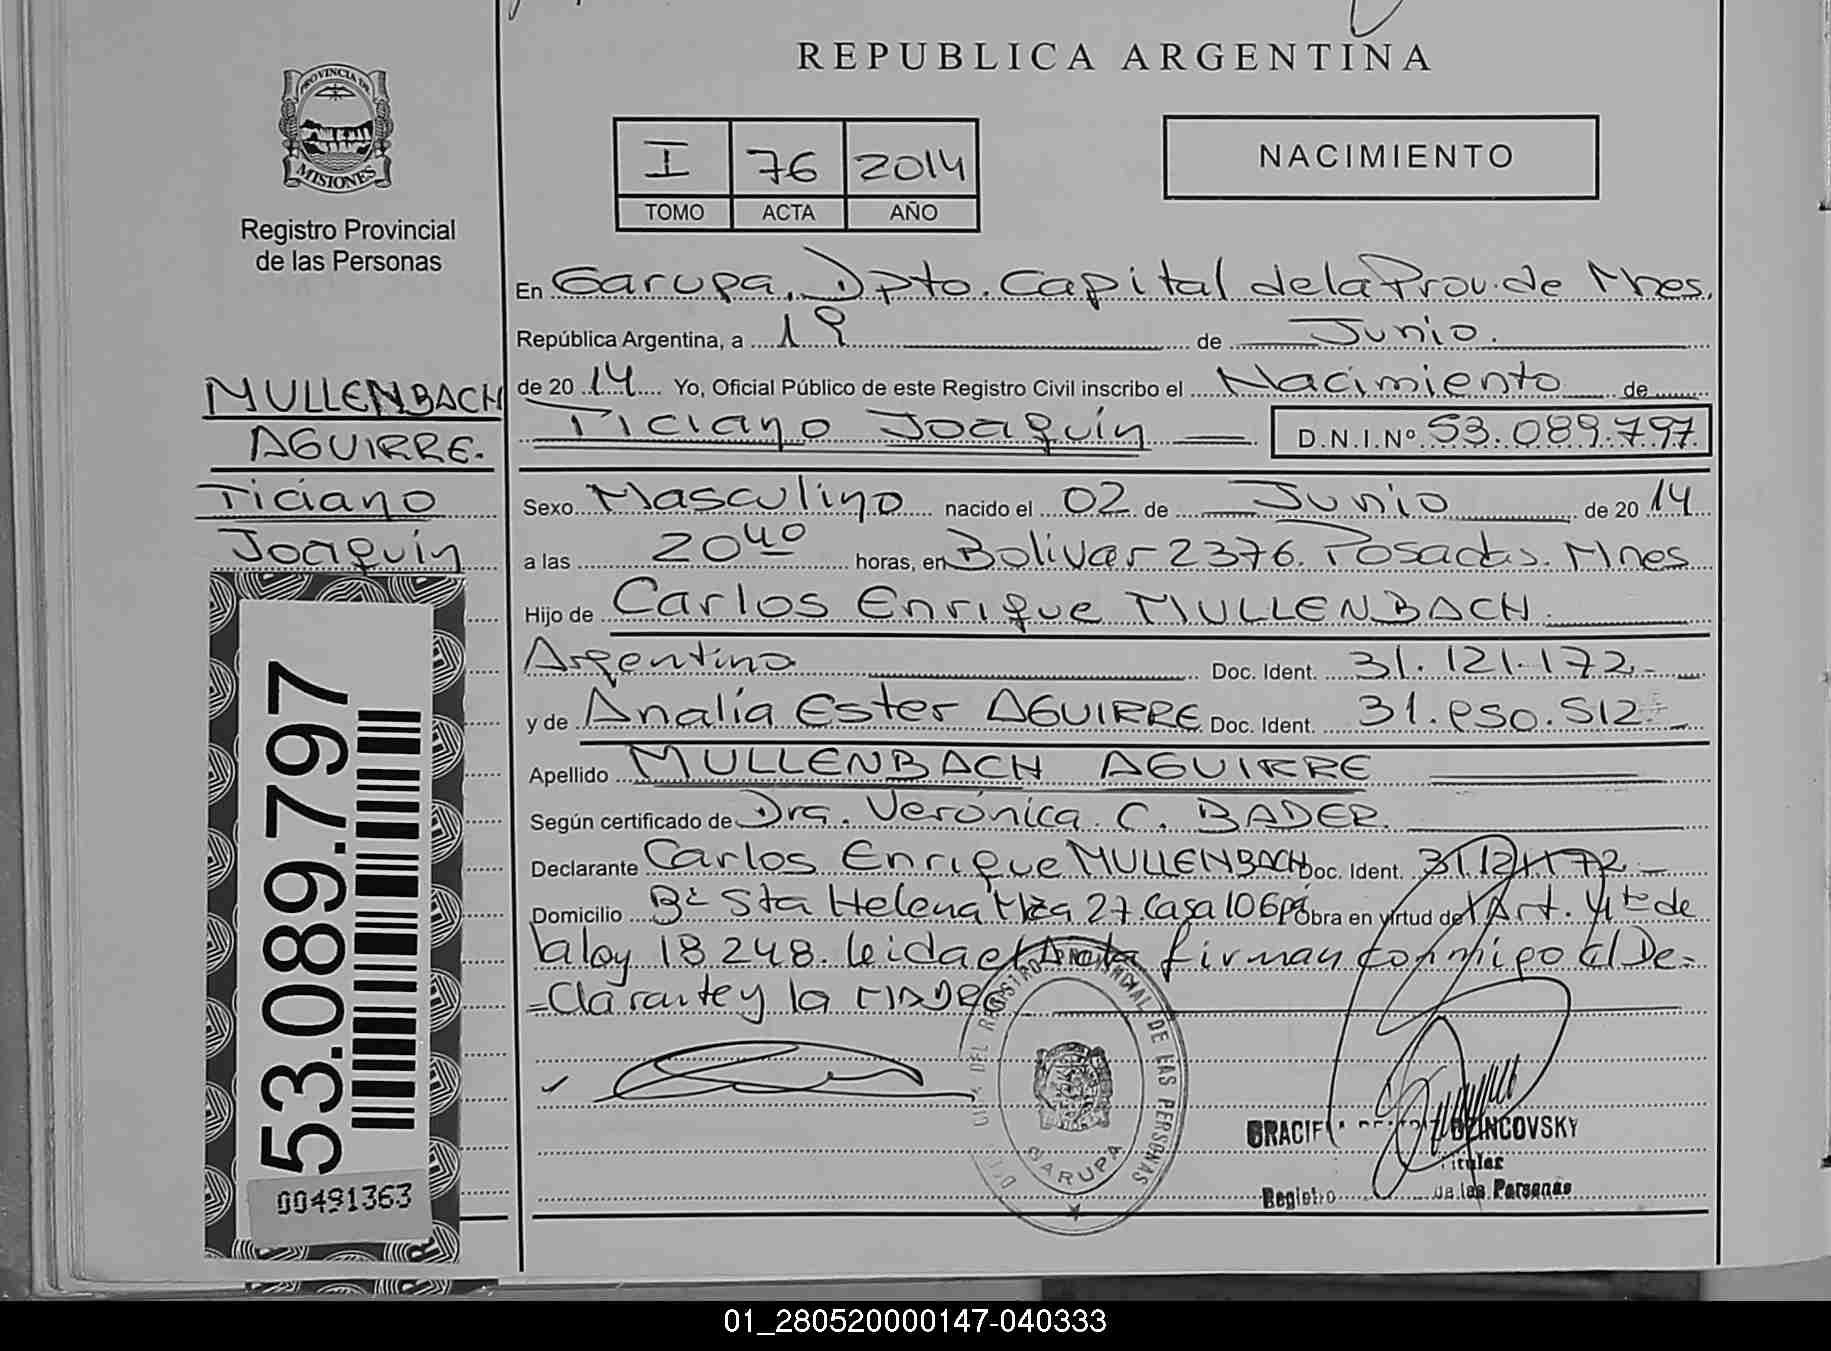 REPUBLICA ARGENTINA
PROVINCIA DE
MISIONES
Registro Provincial
de las Personas
I 76 2014
TOMO ACTA AÑO
NACIMIENTO
En Garupa, Dpto. Capital de la Prov. de Mnes.
República Argentina, a 19 de Junio.
de 2014 Yo, Oficial Público de este Registro Civil inscribo el Nacimiento de
Ticiano Joaquín D.N.I.Nº 53.089.797
MULLENBACH
AGUIRRE.
Ticiano
Joaquín
Sexo Masculino nacido el 02 de Junio de 2014
a las 20 40 horas, en Bolivar 2376. Posadas. Mnes
Hijo de Carlos Enrique MULLENBACH
Argentina Doc. Ident. 31.121.172-
y de Analía Ester AGUIRRE Doc. Ident. 31. .512-
Apellido MULLENBACH AGUIRRE
Según certificado de Dra. Verónica. C. BADER.
Declarante Carlos Enrique MULLENBACH Doc. Ident. 31.121.172-
Domicilio Bº Sta Helena Mza 27 Casa 106 Obra en virtud del Art. de
la ley 18248. leida el Acta firman conmigo el De-
-clarante y la MADRE
DEL REGISTRO PROVINCIAL DE LAS PERSONAS
GARUPA
53.089.797
00491363
Titular
Registro de las Personas
01_280520000147-040333